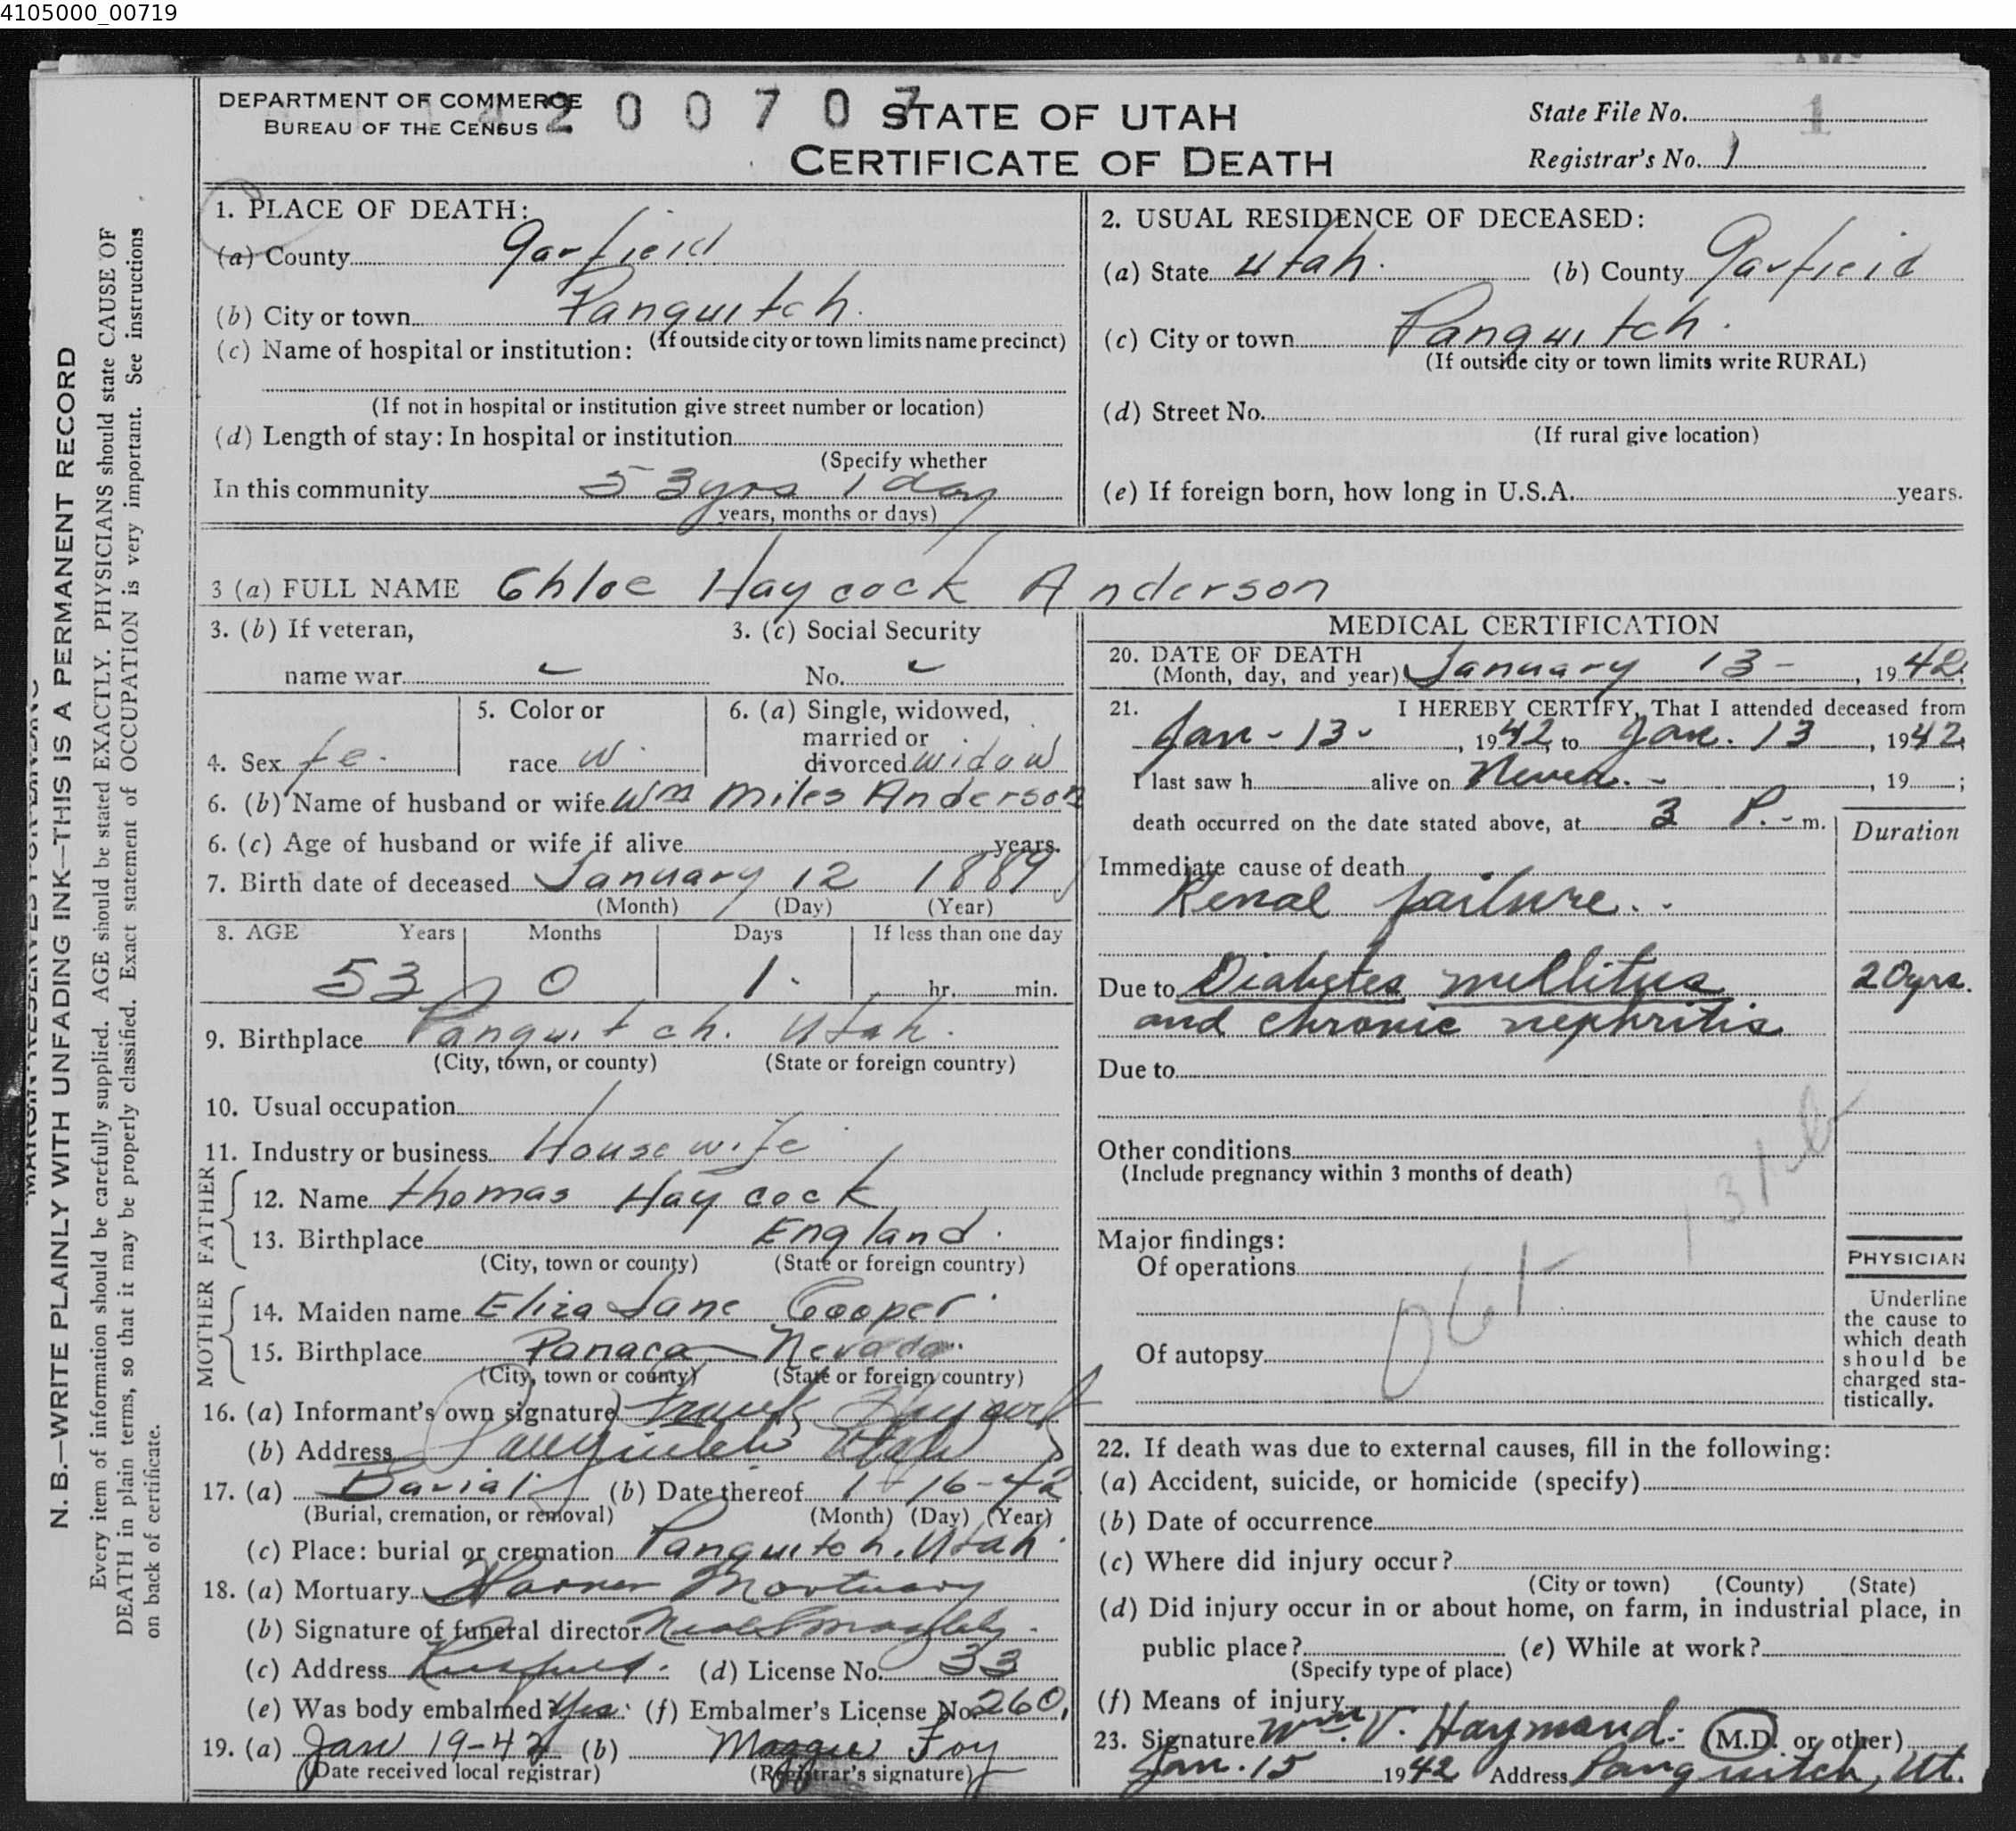 4105000_00719
DEPARTMENT OF COMMERCE
BUREAU OF THE CENSUS
2 0 0 7 0 7
STATE OF UTAH
CERTIFICATE OF DEATH
State File No. 1
Registrar's No. 1
N. B.—WRITE PLAINLY WITH UNFADING INK—THIS IS A PERMANENT RECORD
Every item of information should be carefully supplied. AGE should be stated EXACTLY. PHYSICIANS should state CAUSE OF
DEATH in plain terms, so that it may be properly classified. Exact statement of OCCUPATION is very important. See instructions
on back of certificate.
1. PLACE OF DEATH:
(a) County Garfield
(b) City or town Panguitch.
(If outside city or town limits name precinct)
(c) Name of hospital or institution:
(If not in hospital or institution give street number or location)
(d) Length of stay: In hospital or institution
(Specify whether
In this community 53 yrs 1 day
years, months or days)
2. USUAL RESIDENCE OF DECEASED:
(a) State Utah. (b) County Garfield
(c) City or town Panguitch.
(If outside city or town limits write RURAL)
(d) Street No.
(If rural give location)
(e) If foreign born, how long in U.S.A. years.
3 (a) FULL NAME Chloe Haycock Anderson
3. (b) If veteran,
name war
3. (c) Social Security
No.
4. Sex fe.
5. Color or
race W.
6. (a) Single, widowed,
married or
divorced widow
6. (b) Name of husband or wife Wm Miles Anderson
6. (c) Age of husband or wife if alive years.
7. Birth date of deceased January 12 1889
(Month) (Day) (Year)
8. AGE Years Months Days If less than one day
53 0 1. hr. min.
9. Birthplace Panguitch. Utah.
(City, town, or county) (State or foreign country)
10. Usual occupation
11. Industry or business Housewife
FATHER
12. Name Thomas Haycock
13. Birthplace England.
(City, town or county) (State or foreign country)
MOTHER
14. Maiden name Eliza Jane Cooper.
15. Birthplace Panaca Nevada.
(City, town or county) (State or foreign country)
16. (a) Informant's own signature Frank Haycock
(b) Address Panguitch Utah
17. (a) Burial (b) Date thereof 1-16-42
(Burial, cremation, or removal) (Month) (Day) (Year)
(c) Place: burial or cremation Panguitch, Utah.
18. (a) Mortuary Mortuary
(b) Signature of funeral director
(c) Address (d) License No. 33
(e) Was body embalmed Yes. (f) Embalmer's License No. 260.
19. (a) Jan 19-42 (b) Maggie Foy
(Date received local registrar) (Registrar's signature)
MEDICAL CERTIFICATION
20. DATE OF DEATH
(Month, day, and year) January 13-, 1942
21. I HEREBY CERTIFY, That I attended deceased from
Jan-13-, 1942, to Jan. 13, 1942
I last saw h alive on Never.-, 19 ;
death occurred on the date stated above, at 3 P.-m.
Duration
Immediate cause of death
Renal failure.
Due to Diabetes mellitus 20 yrs.
and chronic nephritis
Due to
Other conditions
(Include pregnancy within 3 months of death)
131-b
Major findings:
Of operations
061
Of autopsy
PHYSICIAN
Underline
the cause to
which death
should be
charged sta-
tistically.
22. If death was due to external causes, fill in the following:
(a) Accident, suicide, or homicide (specify)
(b) Date of occurrence
(c) Where did injury occur?
(City or town) (County) (State)
(d) Did injury occur in or about home, on farm, in industrial place, in
public place? (e) While at work?
(Specify type of place)
(f) Means of injury
23. Signature Wm. V. Haymand. (M.D. or other)
Jan. 15 1942 Address Panguitch, Ut.